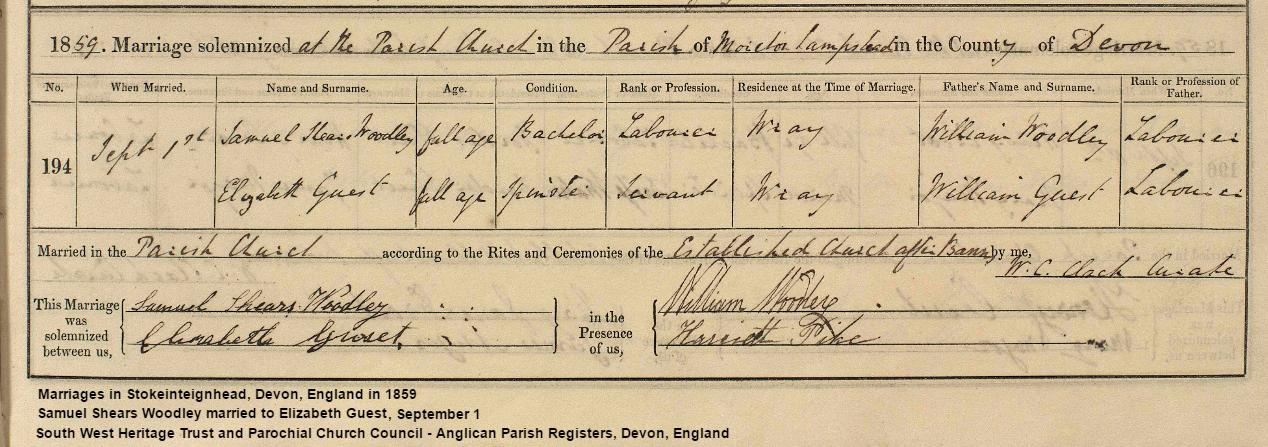 1859. Marriage solemnized at the Parish Church in the Parish of Moretonhampstead in the County of Devon
No. When Married. Name and Surname. Age. Condition. Rank or Profession. Residence at the Time of Marriage. Father's Name and Surname. Rank or Profession of Father.
194 Sept 1st Samuel Shears Woodley full age Bachelor Labourer Wray William Woodley Labourer
Elizabeth Guest full age Spinster Servant Wray William Guest Labourer
Married in the Parish Church according to the Rites and Ceremonies of the Established Church after Banns by me,
W. C. Clack Curate
This Marriage was solemnized between us, Samuel Shears Woodley in the Presence of us, William Woodley
Elizabeth Guest Harriett Pike
Marriages in Stokeinteignhead, Devon, England in 1859
Samuel Shears Woodley married to Elizabeth Guest, September 1
South West Heritage Trust and Parochial Church Council - Anglican Parish Registers, Devon, England